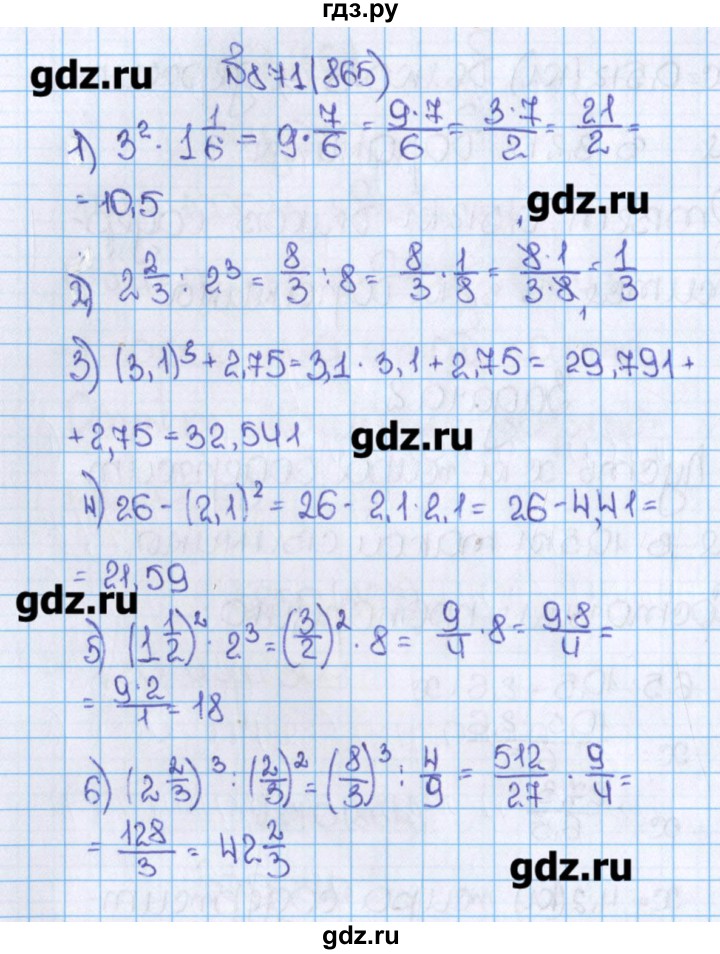 гдз.ру
gdz.ru
№871(865)
1) 3² · 1 1/6 = 9 · 7/6 = 9·7/6 = 3·7/2 = 21/2 =
= 10,5
gdz.ru
2) 2 2/3 : 2³ = 8/3 : 8 = 8/3 · 1/8 = 8·1/3·8 = 1/3
3) (3,1)³ + 2,75 = 3,1 · 3,1 + 2,75 = 29,791 +
+ 2,75 = 32,541
gdz.ru
4) 26 - (2,1)² = 26 - 2,1 · 2,1 = 26 - 4,41 =
= 21,59
gdz.ru
5) (1 1/2)² · 2³ = (3/2)² · 8 = 9/4 · 8 = 9·8/4 =
= 9·2/1 = 18
6) (2 2/3)³ : (2/3)² = (8/3)³ : 4/9 = 512/27 · 9/4 =
= 128/3 = 42 2/3
gdz.ru
gdz.ru